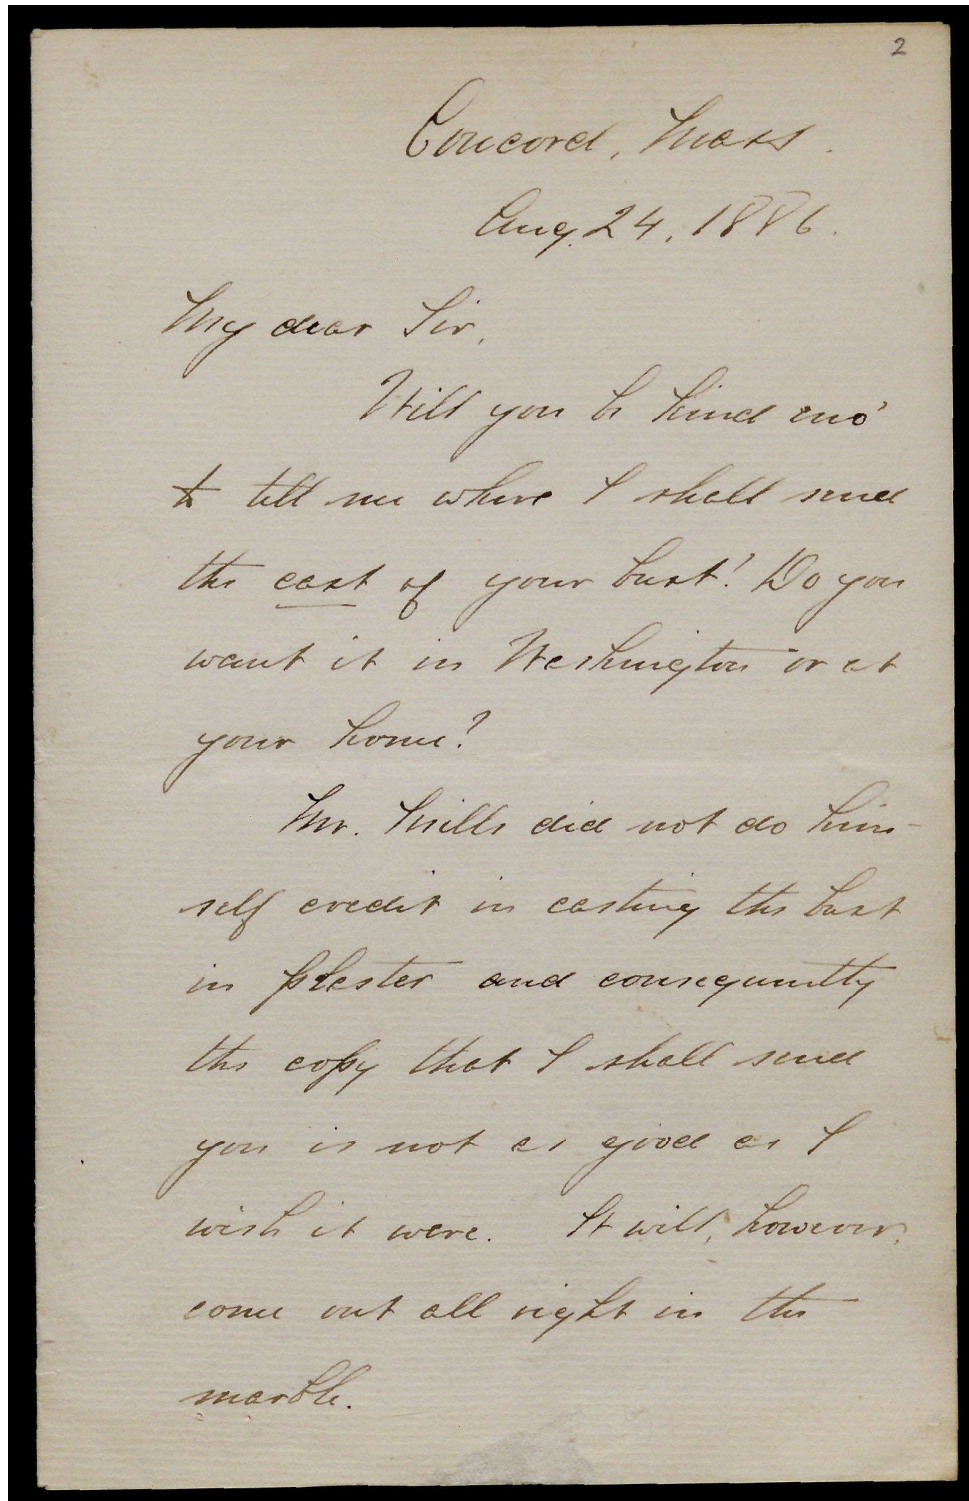 2
Concord, Mass.
Aug. 24, 1886.
My dear Sir,
Will you be kind eno'
to tell me where I shall send
the cast of your bust? Do you
want it in Washington or at
your home?
Mr. Mills did not do him-
self credit in casting the bust
in plaster and consequently
the copy that I shall send
you is not as good as I
wish it were. It will, however,
come out all right in the
marble.